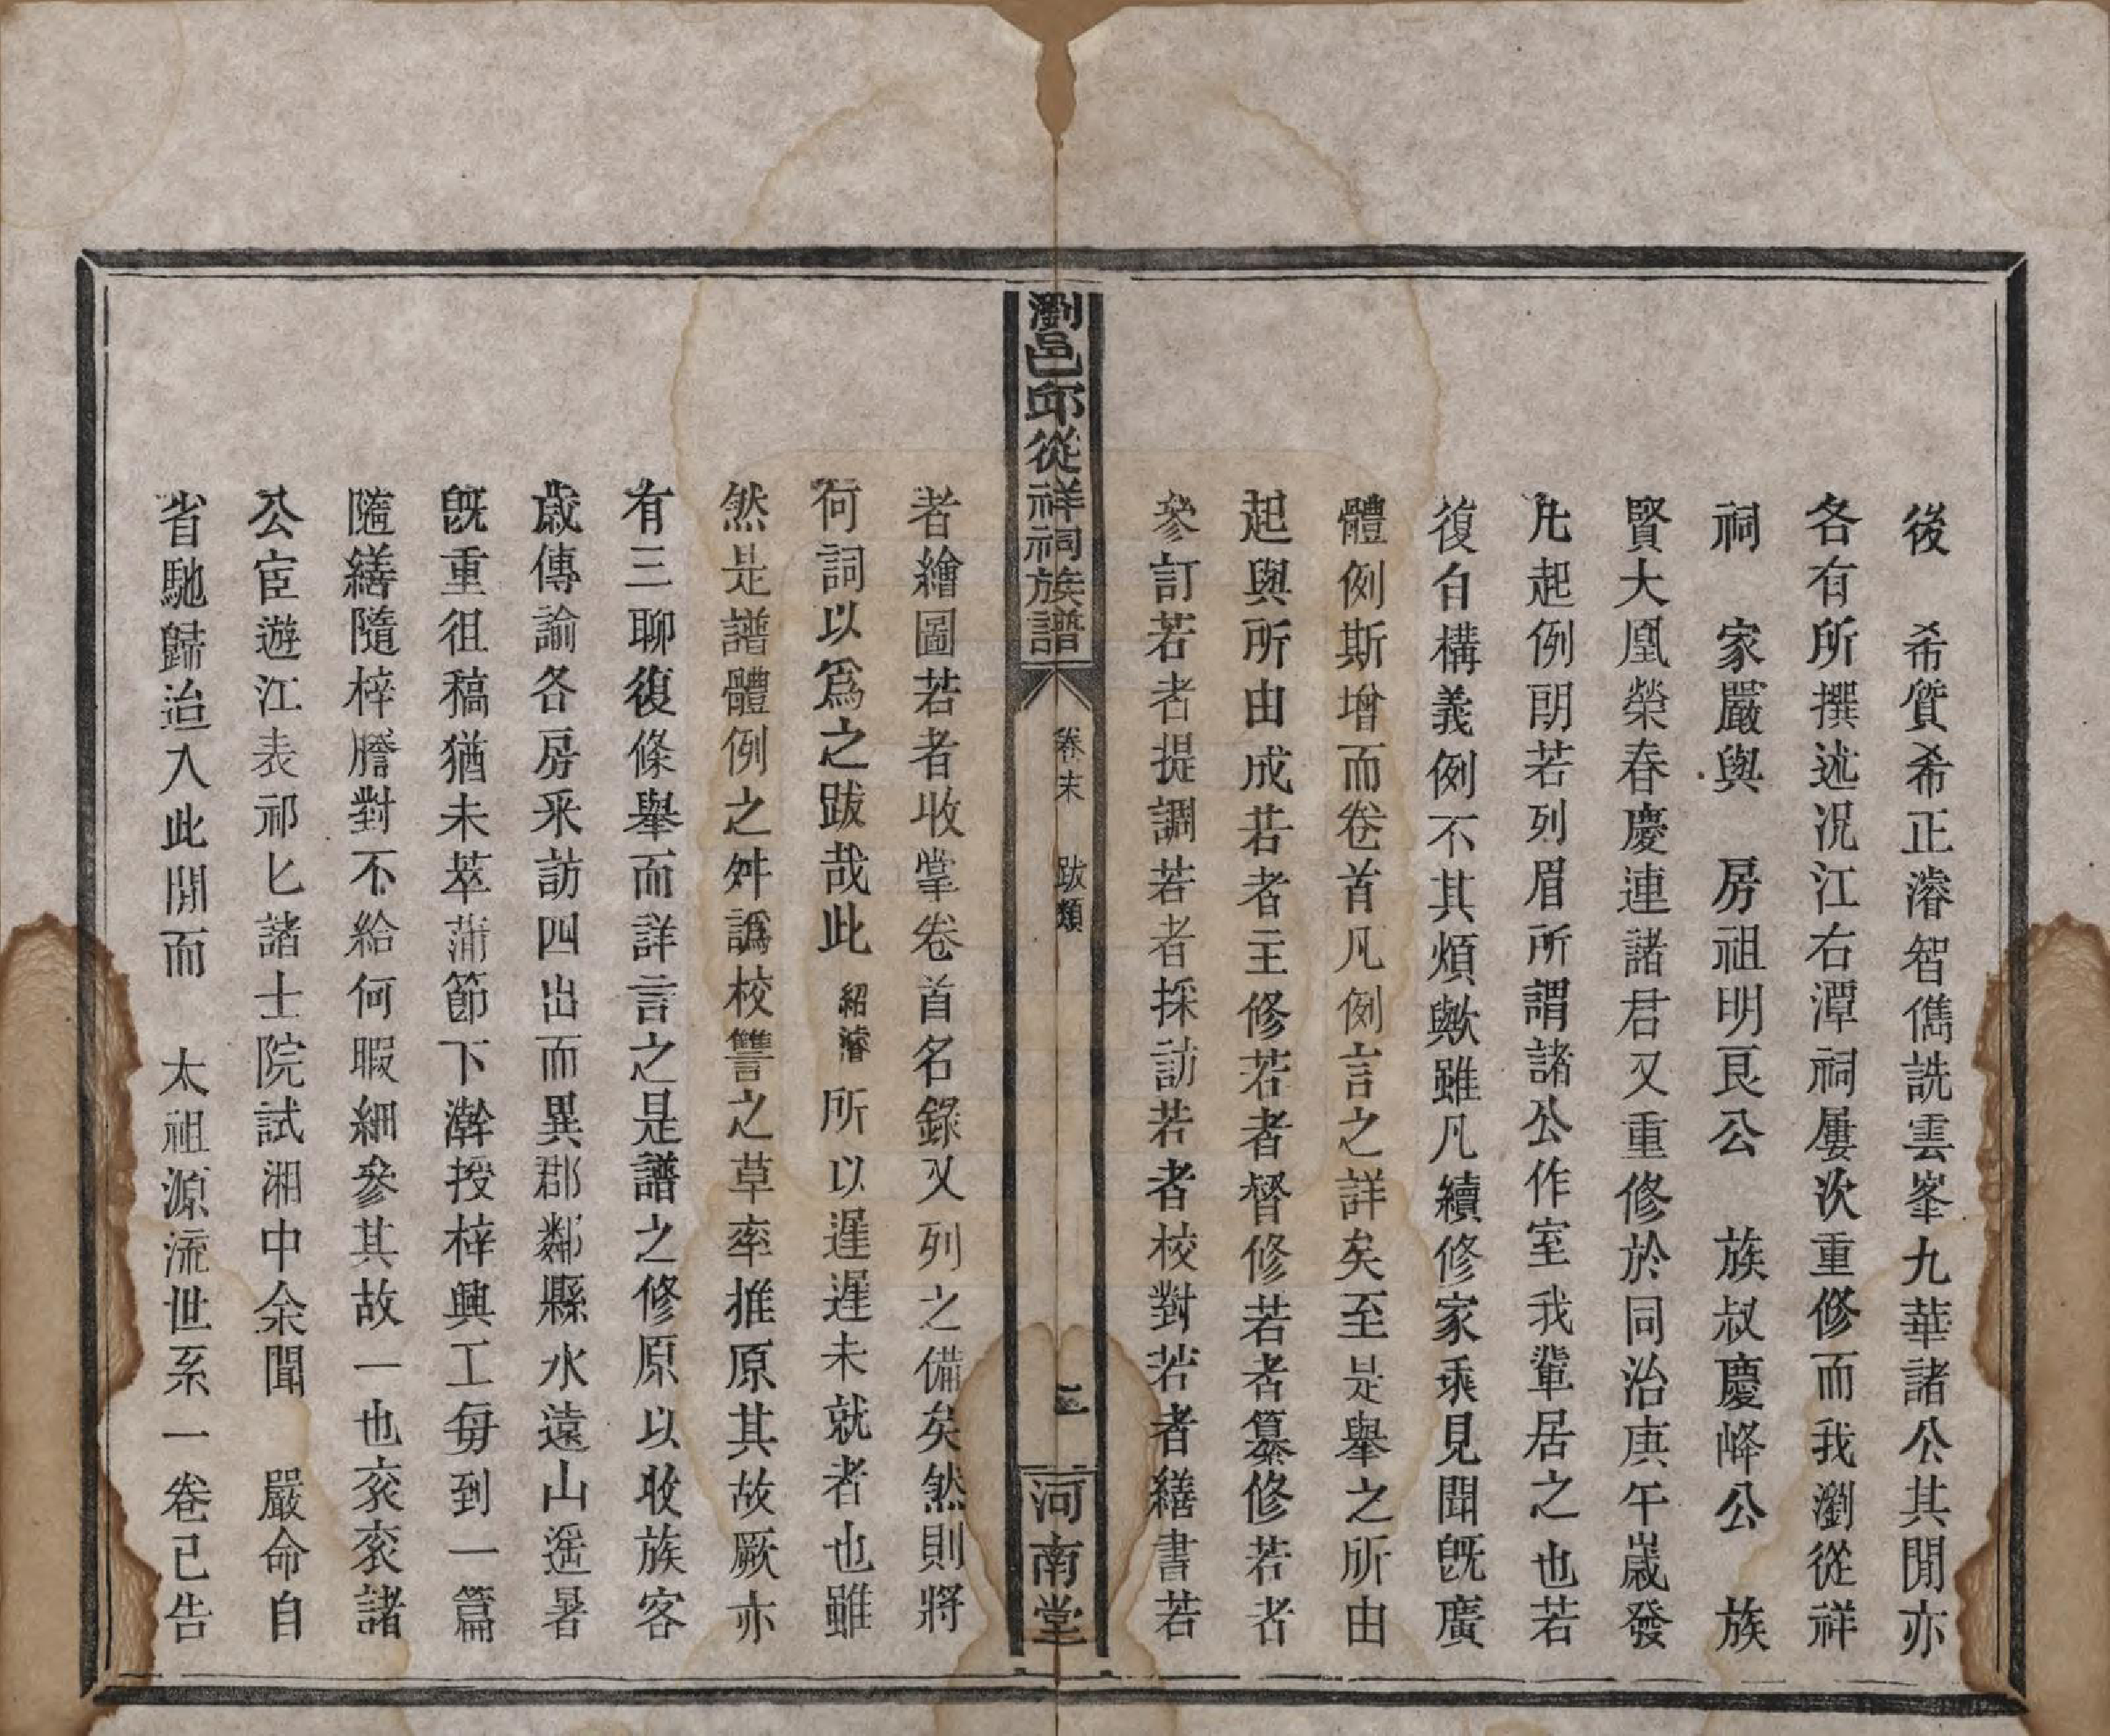 後　希質希正濬智儁詵雲峯九華諸公其閒亦
各有所撰述况江右潭祠屢次重修而我瀏從祥
祠　家嚴與　房祖明良公　族叔慶峰公　族
賢大凰榮春慶連諸君又重修於同治庚午歲發
凡起例朗若列眉所謂諸公作室我輩居之也若
復自構義例不其煩歟雖凡續修家乘見聞旣廣
體例斯增而卷首凡例言之詳矣至是舉之所由
起與所由成若者主修若者督修若者纂修若者
參訂若者提調若者採訪若者校對若者繕書若
瀏邑邱從祥祠族譜
卷末　跋類
河南堂
者繪圖若者收掌卷首名錄又列之備矣然則將
何詞以爲之跋哉此紹濬所以遲遲未就者也雖
然是譜體例之舛譌校讐之草率推原其故厥亦
有三聊復條舉而詳言之是譜之修原以收族客
歲傳諭各房采訪四出而異郡鄰縣水遠山遥暑
旣重徂稿猶未萃蒲節下澣授梓興工每到一篇
隨繕隨梓謄對不給何暇細參其故一也衮衮諸
公宦遊江表祁匕諸士院試湘中余聞　嚴命自
省馳歸治入此閒而　太祖源流世系一卷已告